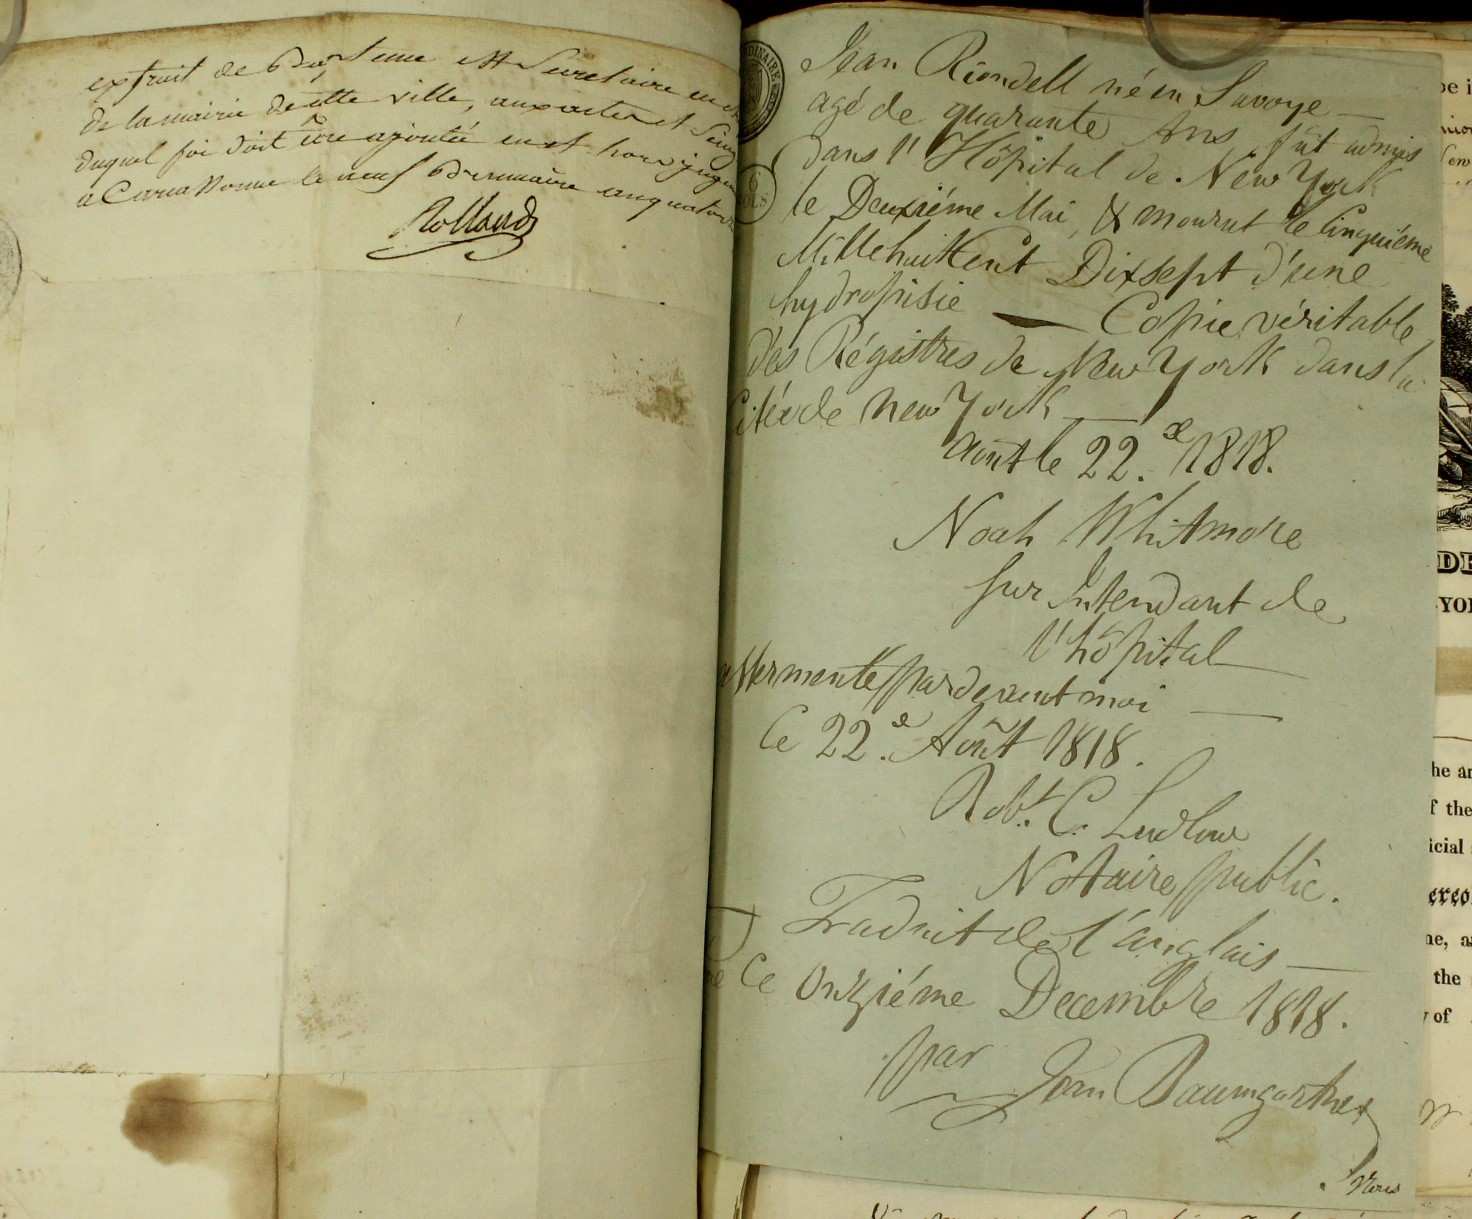 extrait de Brumaire est Secretaire en ch
de la mairie de cette ville, aux actes et Seing
duquel foi doit être ajoutée en et hors jugem
a Carcassonne le neuf Brumaire an quatorze
Rolland
Jean Riondell né en Savoye —
agé de quarante Ans, fût admis
dans l'Hôpital de New York
le Deuxiéme Mai, & mourut le Cinquiéme
Mille huit Cent Dix sept d'une
hydropisie — Copie véritable
des Régistres de New York dans la
Cité de New York —
Août le 22.e 1818.
Noah Whitmore
Sur Intendant de
l'hôpital —
assermenté pardevant moi —
Ce 22.e Août 1818.
Robt. C. Ludlow
Notaire public.
Traduit de l'anglais —
Ce Onziéme Decembre 1818.
par Jean Baumgartner
Nous
6
SOLS
DINAIRE
be i
DE
YOR
he an
f the
icial
ereo
ne, a
the
of